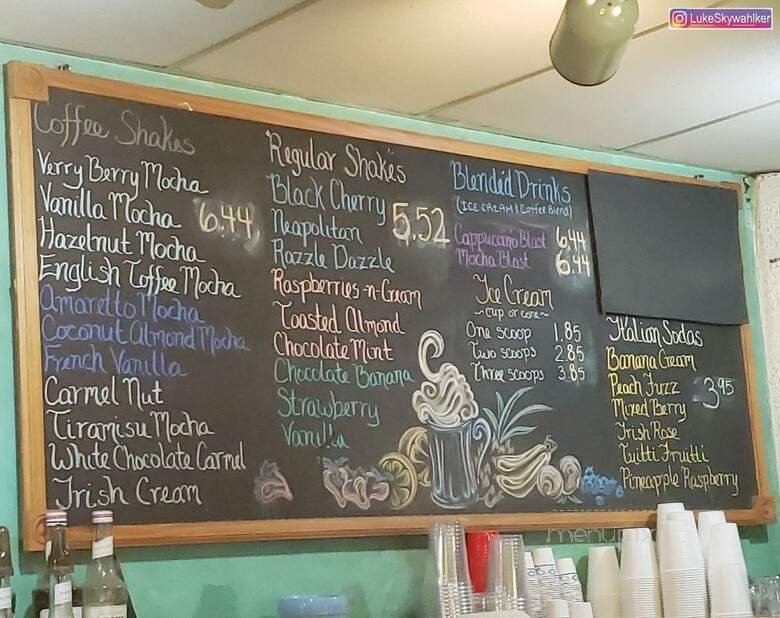 LukeSkywahlker
Coffee Shakes
Verry Berry Mocha
Vanilla Mocha 6.44
Hazelnut Mocha
English Toffee Mocha
Amaretto Mocha
Coconut Almond Mocha
French Vanilla
Carmel Nut
Tiramisu Mocha
White Chocolate Carmel
Irish Cream
Regular Shakes
Black Cherry 5.52
Neapolitan
Razzle Dazzle
Raspberries-n-Cream
Toasted Almond
Chocolate Mint
Chocolate Banana
Strawberry
Vanilla
Blended Drinks
(ICE CREAM & Coffee Blend)
Cappuccino Blast 6.44
Mocha Blast 6.44
Ice Cream
~cup or cone~
One scoop 1.85
Two scoops 2.85
Three scoops 3.85
Italian Sodas
Banana Cream
Peach Fuzz 3.95
Mixed Berry
Irish Rose
Tuitti Fruitti
Pineapple Raspberry
menupix